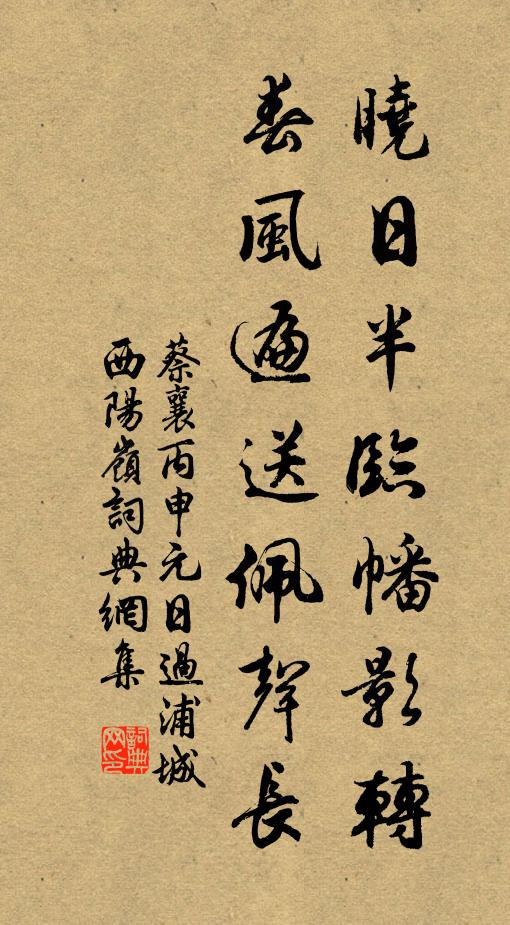 曉日半臨幡影轉
春風遍送佩聲長
蔡襄丙申元日過浦城
西陽嶺詞典網集
詞典
网印